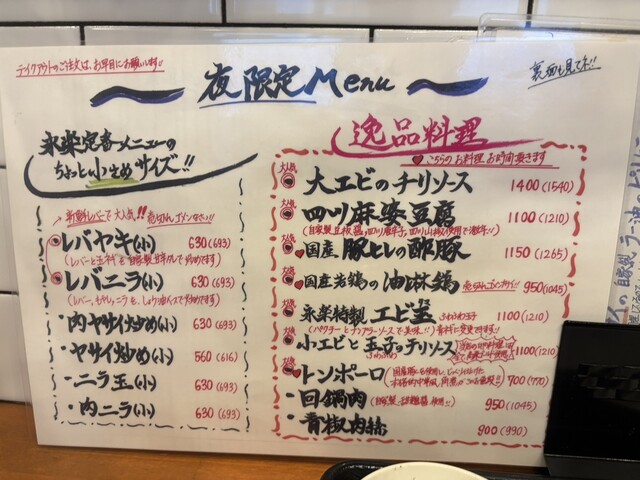 テイクアウトのご注文は、お早目にお願いします!!
夜限定Menu
裏面も見てネ!!
永楽定番メニューの
ちょっと小さめサイズ!!
新鮮レバーで大人気!! 売切れゴメンなさい!!
レバヤキ(小) 630(693)
レバニラ(小) 630(693)
(レバー、もやし、ニラを、しょう油ベースで炒めてます)
・肉ヤサイ炒め(小) 630(693)
・ヤサイ炒め(小) 560(616)
・ニラ玉(小) 630(693)
・肉ニラ(小) 630(693)
逸品料理
こちらのお料理、お時間頂きます
大人気 大エビのチリソース 1400(1540)
大人気 四川麻婆豆腐 1100(1210)
国産 豚ヒレの酢豚 1150(1265)
大人気 国産若鶏の油淋鶏 売切れゴメン御礼!! 950(1045)
大人気 永楽特製エビ玉 ふわふわ玉子 1100(1210)
大人気 小エビと玉子のチリソース 1100(1210)
ふわふわ
大人気 トンポーロ 700(770)
・回鍋肉 950(1045)
・青椒肉絲 900(990)